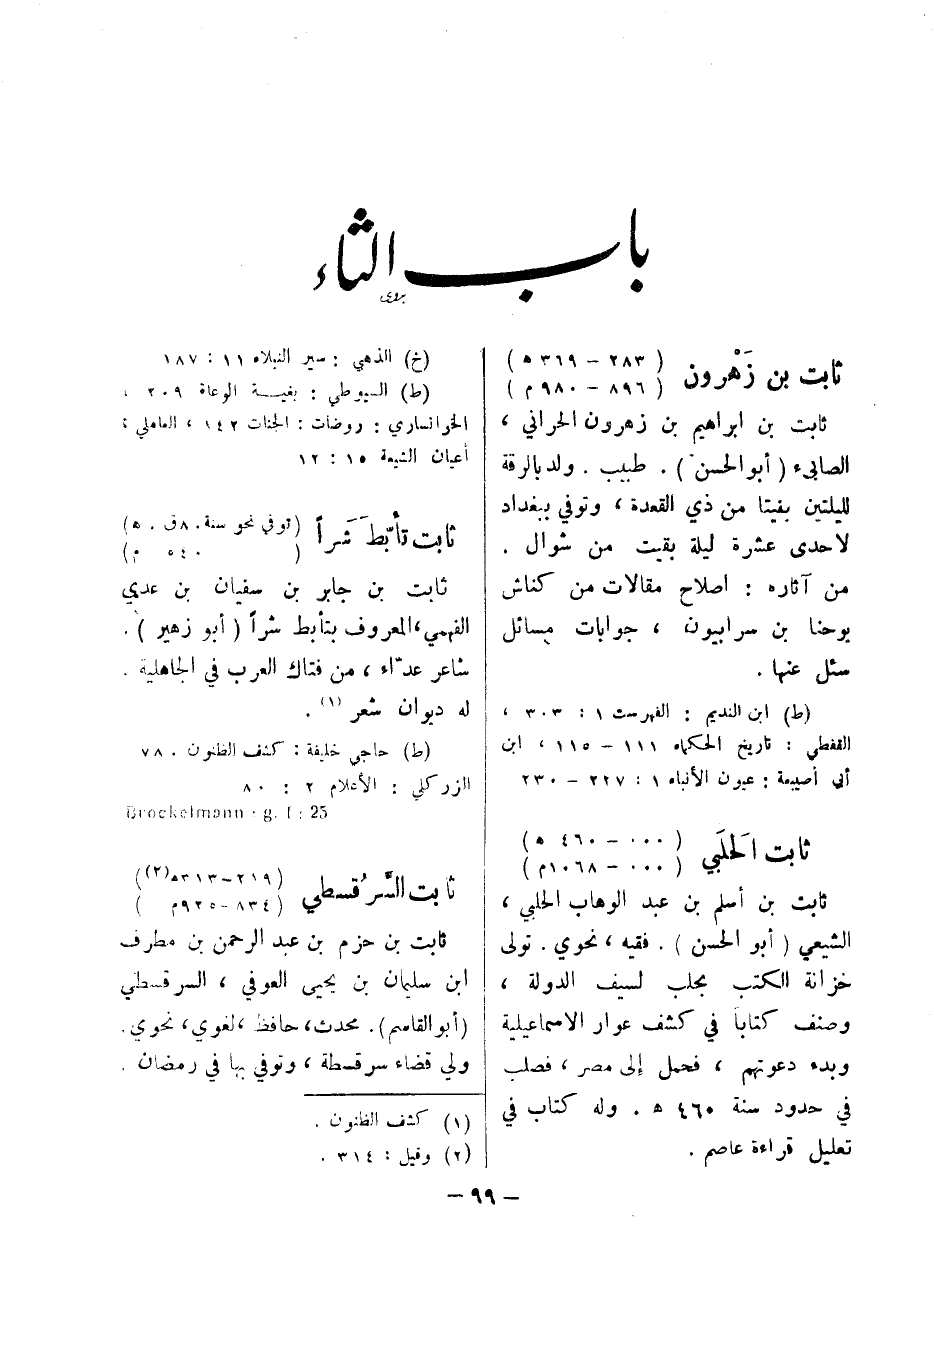 باب الثاء
ثابت بن زَهْرون
( ٢٨٣ – ٣٦٩ ه )
( ٨٩٦ – ٩٨٠ م )
ثابت بن ابراهيم بن زهرون الحراني ،
الصابىء ( أبو الحسن ) . طبيب . ولد بالرقة
لليلتين بقيتا من ذي القعدة ، وتوفي ببغداد
لاحدى عشرة ليلة بقيت من شوال .
من آثاره : اصلاح مقالات من كناش
يوحنا بن سرابيون ، جوابات مسائل
سئل عنها .
(ط) ابن النديم : الفهرست ١ : ٣٠٣ ،
القفطي : تاريخ الحكماء ١١١ – ١١٥ ، ابن
أبي أصيبعة : عيون الأنباء ١ : ٢٢٧ – ٢٣٠
ثابت الحَلَبي
( ٠٠٠ – ٤٦٠ ه )
( ٠٠٠ – ١٠٦٨ م )
ثابت بن أسلم بن عبد الوهاب الحلبي ،
الشيعي ( أبو الحسن ) . فقيه ، نحوي . تولى
خزانة الكتب بحلب لسيف الدولة ،
وصنف كتاباً في كشف عوار الاسماعيلية
وبدء دعوتهم ، فحمل إلى مصر ، فصلب
في حدود سنة ٤٦٠ ه . وله كتاب في
تعليل قراءة عاصم .
(خ) الذهبي : سير النبلاء ١١ : ١٨٧
(ط) السيوطي : بغية الوعاة ٢٠٩ ،
الخوانساري : روضات : الجنات ١٤٢ ، العاملي :
أعيان الشيعة ١٥ : ١٢
ثابت تأبَّطَ شَراً
(توفي نحو سنة ٨٠ ق . ه)
( ٥٤٠ م )
ثابت بن جابر بن سفيان بن عدي
الفهمي ، المعروف بتأبط شراً ( أبو زهير ) .
شاعر عدّاء ، من فتاك العرب في الجاهلية .
له ديوان شعر (١) .
(ط) حاجي خليفة : كشف الظنون ٧٨٠
الزركلي : الأعلام ٢ : ٨٠
Brockelmann : g. I : 25
ثابت السَّرَقُسطي
( ٢١٩ – ٣١٣ ه(٢) )
( ٨٣٤ – ٩٢٥ م )
ثابت بن حزم بن عبد الرحمن بن مطرف
ابن سليمان بن يحيى العوفي ، السرقسطي
(أبو القاسم) . محدث ، حافظ ، لغوي ، نحوي .
ولي قضاء سرقسطة ، وتوفي بها في رمضان .
(١) كشف الظنون .
(٢) وقيل : ٣١٤ .
– ٩٩ –